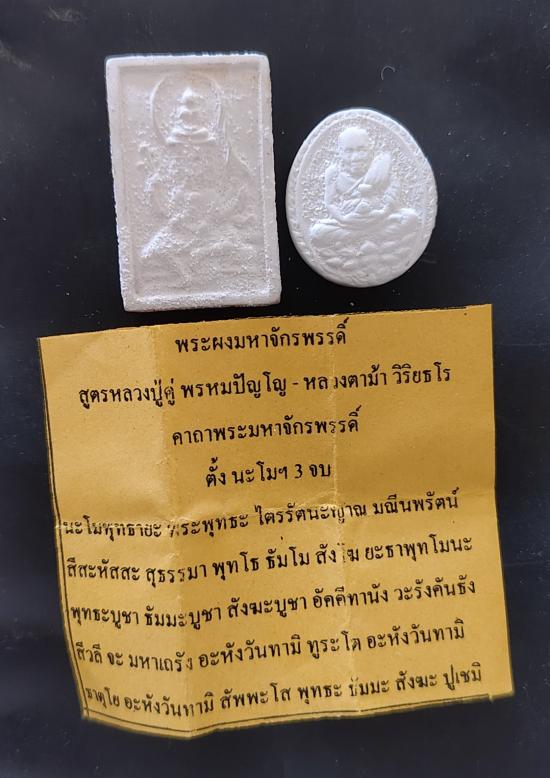 พระผงมหาจักรพรรดิ์
สูตรหลวงปู่ดู่ พรหมปัญโญ - หลวงตาม้า วิริยธโร
คาถาพระมหาจักรพรรดิ์
ตั้ง นะโมฯ 3 จบ
นะโมพุทธายะ พระพุทธะ ไตรรัตนะญาณ มณีนพรัตน์
สีสะหัสสะ สุธรรมา พุทโธ ธัมโม สังโฆ ยะธาพุทโมนะ
พุทธะบูชา ธัมมะบูชา สังฆะบูชา อัคคีทานัง วะรังคันธัง
สีวลี จะ มหาเถรัง อะหังวันทามิ ทูระโต อะหังวันทามิ
ธาตุโย อะหังวันทามิ สัพพะโส พุทธะ ธัมมะ สังฆะ ปูเชมิ